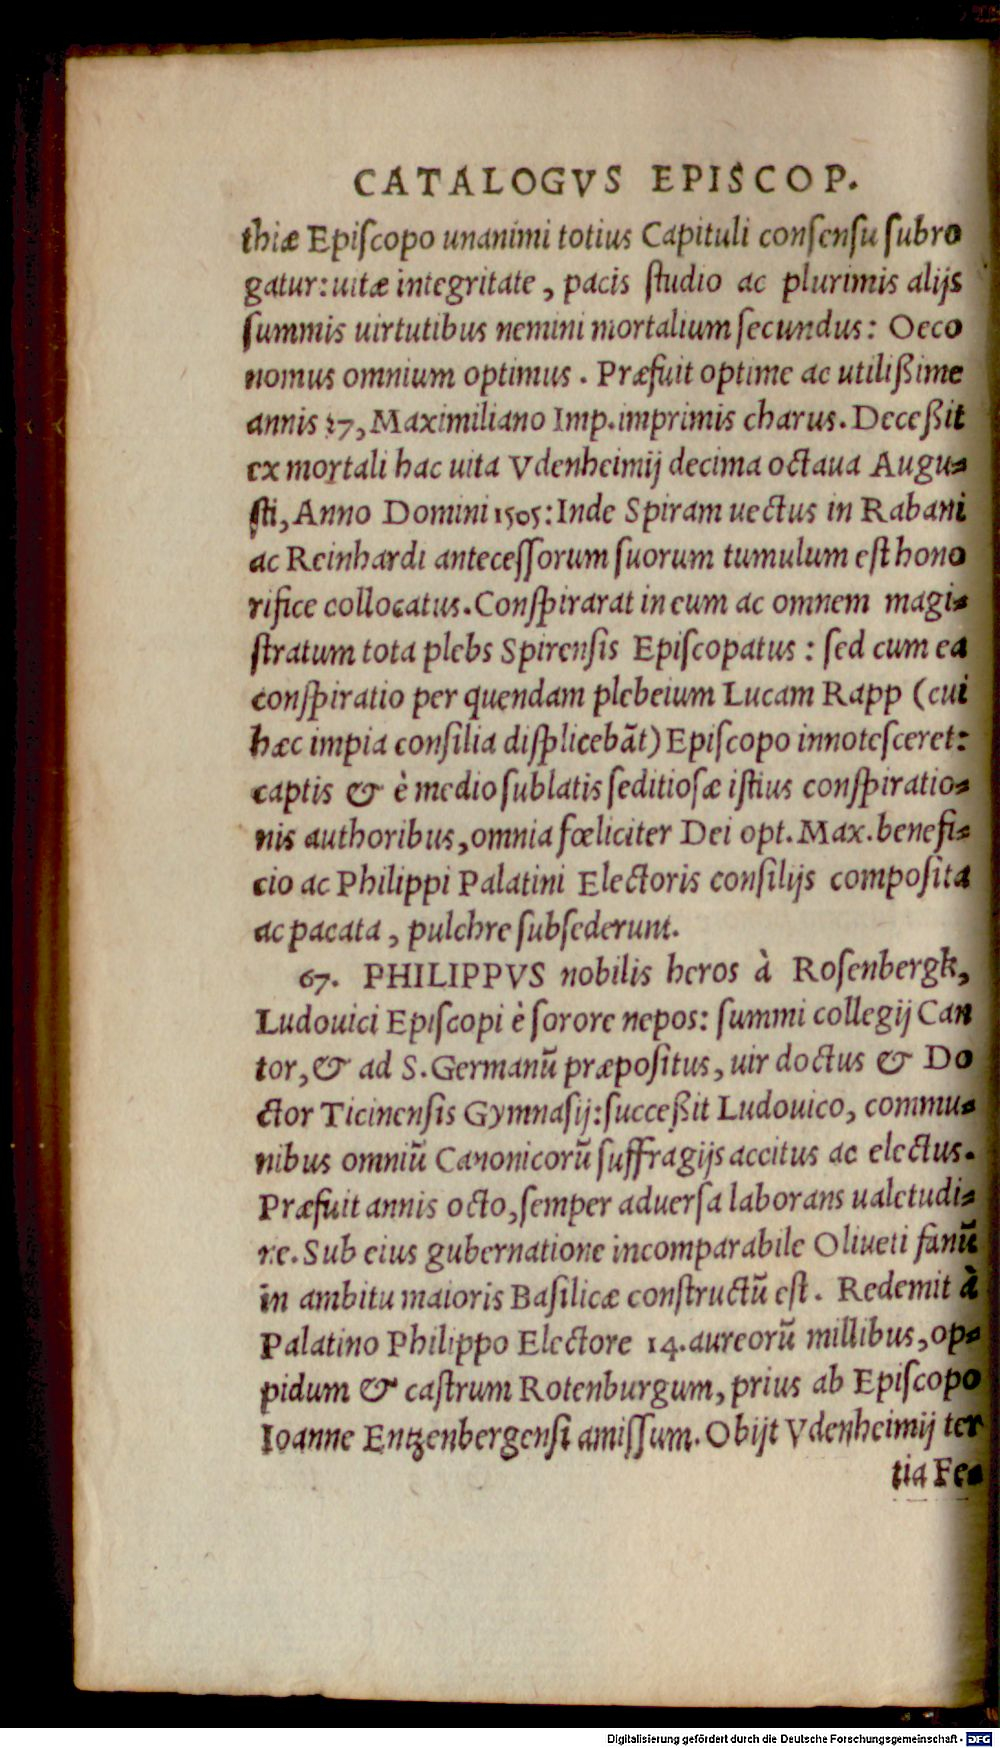 CATALOGVS EPISCOP.
thiæ Epiſcopo unanimi totius Capituli conſenſu ſubro
gatur: uitæ integritate, pacis ſtudio ac plurimis alijs
ſummis uirtutibus nemini mortalium ſecundus: Oeco
nomus omnium optimus. Præfuit optime ac utilißime
annis 27, Maximiliano Imp. imprimis charus. Deceßit
ex mortali hac uita Vdenheimij decima octaua Augu-
ſti, Anno Domini 1505: Inde Spiram uectus in Rabani
ac Reinhardi anteceſſorum ſuorum tumulum eſt hono
rifice collocatus. Conſpirarat in eum ac omnem magi-
ſtratum tota plebs Spirenſis Epiſcopatus: ſed cum ea
conſpiratio per quendam plebeium Lucam Rapp (cui
hæc impia conſilia diſplicebāt) Epiſcopo innoteſceret:
captis & è medio ſublatis ſeditioſæ iſtius conſpiratio-
nis authoribus, omnia fœliciter Dei opt. Max. benefi-
cio ac Philippi Palatini Electoris conſilijs compoſita
ac pacata, pulchre ſubſederunt.
67. PHILIPPVS nobilis heros à Roſenbergk,
Ludouici Epiſcopi è ſorore nepos: ſummi collegij Can
tor, & ad S. Germanū præpoſitus, uir doctus & Do
ctor Ticinenſis Gymnaſij: ſucceßit Ludouico, commu-
nibus omniū Canonicorū ſuffragijs accitus ac electus.
Præfuit annis octo, ſemper aduerſa laborans ualetudi-
ne. Sub eius gubernatione incomparabile Oliueti fanū
in ambitu maioris Baſilicæ conſtructū eſt. Redemit à
Palatino Philippo Electore 14. aureorū millibus, op-
pidum & caſtrum Rotenburgum, prius ab Epiſcopo
Ioanne Entzenbergenſi amiſſum. Obijt Vdenheimij ter
tia Fe-
Digitalisierung gefördert durch die Deutsche Forschungsgemeinschaft - DFG